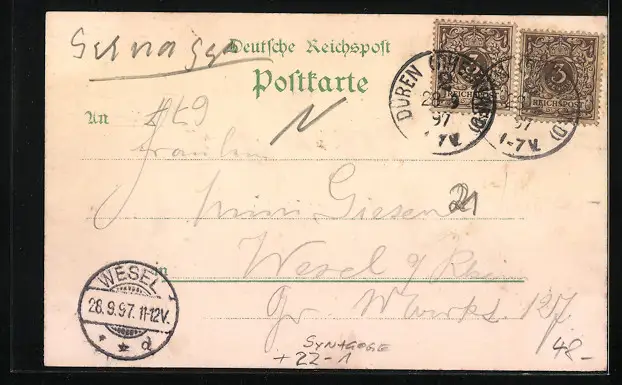 Synagoge
Deutsche Reichspost
Postkarte
An
Fräulein
Mimi Giesen
21
in Wesel a/ Rhein
Gr. Markt 127
DÜREN (RHEINLAND)
28 9
97
1-7V.
3
REICHSPOST
3
REICHSPOST
97
1-7V.
WESEL
28.9.97.11-12V.
d
SYNAGOGE
+22-1
48-